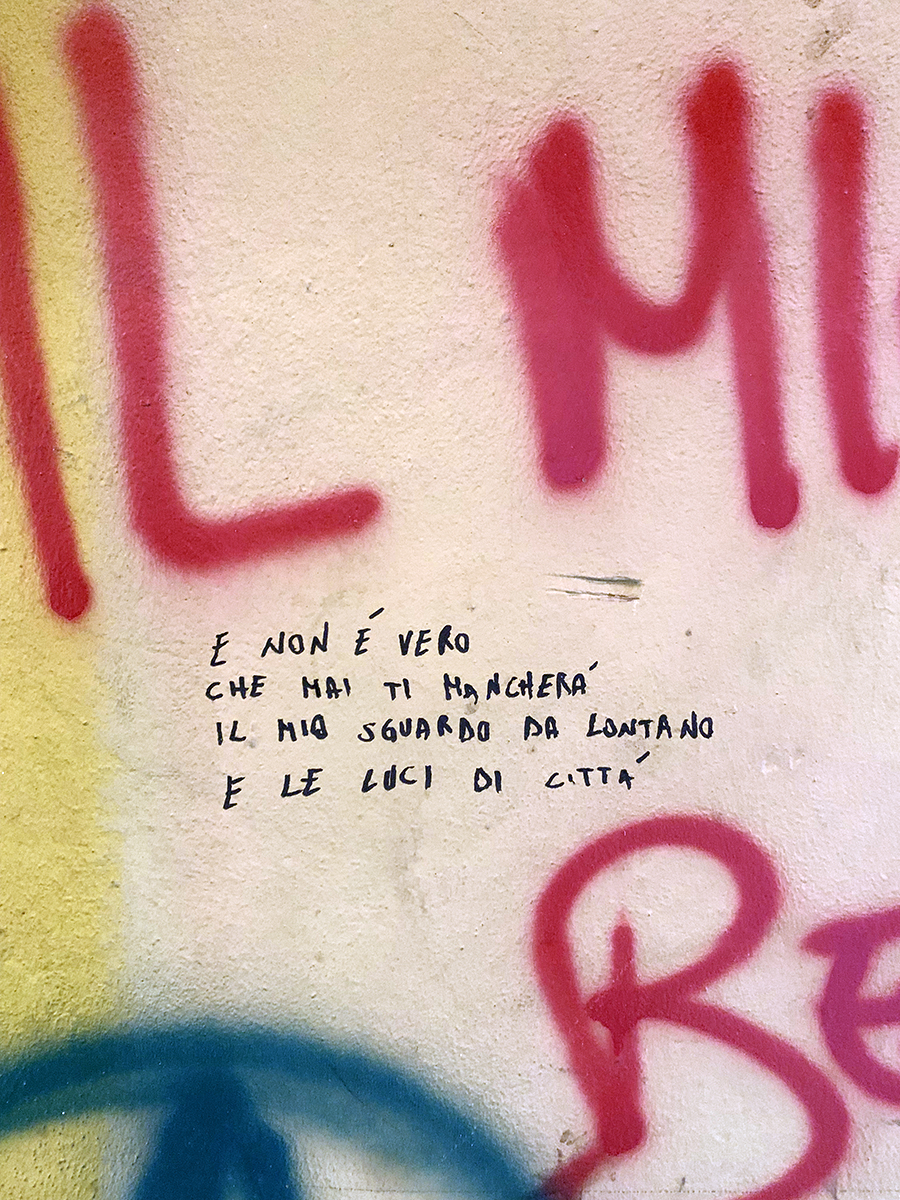 IL MI
E NON É VERO
CHE MAI TI MANCHERÁ
IL MIO SGUARDO DA LONTANO
E LE LUCI DI CITTÁ
BE
A